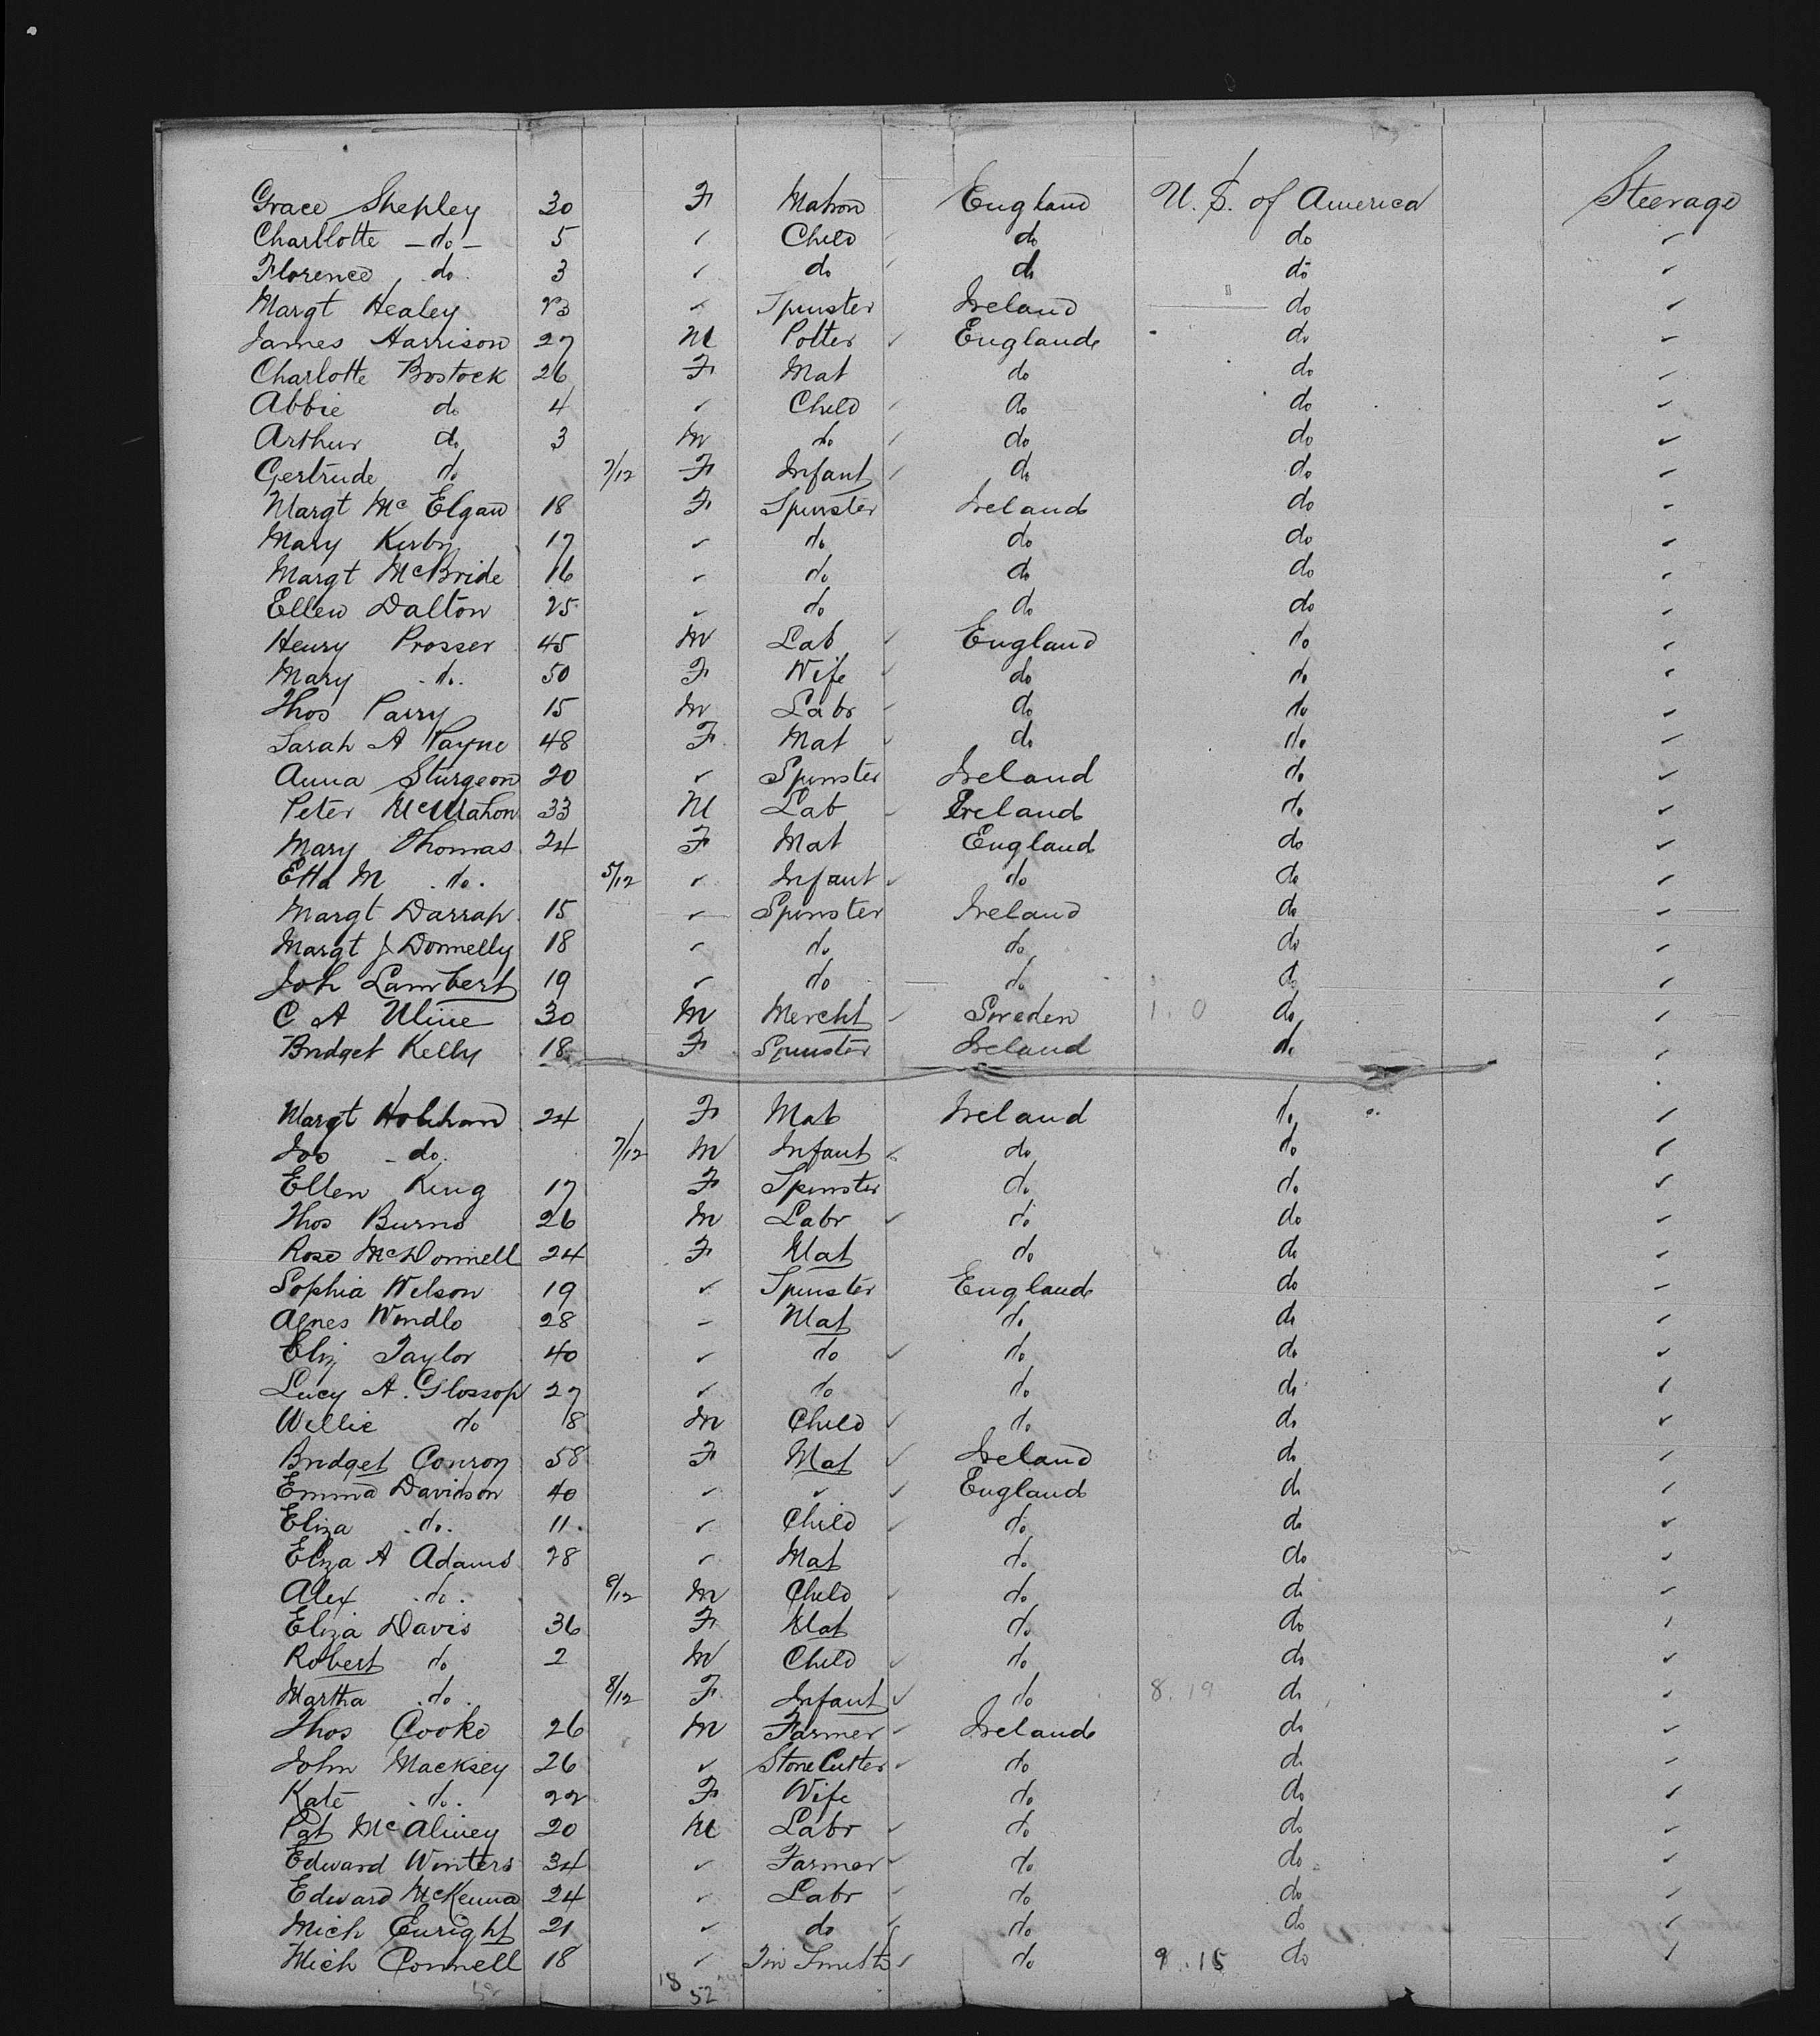 Grace Shepley 30 F Matron England U.S. of America Steerage
Charllotte - do - 5 ✓ Child do do ✓
Florence do 3 ✓ do do do ✓
Margt Healey 23 ✓ Spinster Ireland do ✓
James Harrison 27 M Potter ✓ England do ✓
Charlotte Bostock 26 F Mat do do ✓
Abbie do 4 ✓ Child do do ✓
Arthur do 3 M do do do ✓
Gertrude do 7/12 F Infant do do ✓
Margt McElgan 18 F Spinster Ireland do ✓
Mary Kirby 17 ✓ do do do ✓
Margt McBride 16 ✓ do do do ✓
Ellen Dalton 25 ✓ do do do ✓
Henry Prosser 45 M Lab ✓ England do ✓
Mary do 50 F Wife do do ✓
Thos Parry 15 M Labr do do ✓
Sarah A Payne 48 F Mat do do ✓
Anna Sturgeon 20 ✓ Spinster Ireland do ✓
Peter McMahon 33 M Lab Ireland do ✓
Mary Thomas 24 F Mat England do ✓
Etta M do 5/12 ✓ Infant ✓ do do ✓
Margt Darrah 15 ✓ Spinster Ireland do ✓
Margt J Donnelly 18 ✓ do do do ✓
Joh Lambert 19 ✓ do do do ✓
C A Uline 30 M Mercht Sweden 1.0 do ✓
Bridget Kelly 18 F Spinster Ireland do ✓
Margt Holihan 24 F Mat Ireland do ✓
Jos do 7/12 M Infant ✓ do do ✓
Ellen King 17 F Spinster do do ✓
Thos Burns 26 M Labr ✓ do do ✓
Rose McDonnell 24 F Mat do do ✓
Sophia Wilson 19 ✓ Spinster England do ✓
Agnes Windlo 28 ✓ Mat do do ✓
Eliz Taylor 40 ✓ do ✓ do do ✓
Lucy A. Glossop 27 ✓ do do do ✓
Willie do 8 M Child ✓ do do ✓
Bridget Conroy 58 F Mat ✓ Ireland do ✓
Emma Davidson 40 ✓ ✓ ✓ England do ✓
Eliza do 11 ✓ Child ✓ do do ✓
Eliza A Adams 28 ✓ Mat do do ✓
Alex do 8/12 M Child do do ✓
Eliza Davis 36 F Mat do do ✓
Robert do 2 M Child ✓ do do ✓
Martha do 8/12 F Infant ✓ do 8.19 do ✓
Thos Cooke 26 M Farmer ✓ Ireland do ✓
John Macksey 26 ✓ Stone Cutter ✓ do do ✓
Kate do 22 F Wife do do ✓
Pat McAliney 20 M Labr ✓ do do ✓
Edward Winters 34 ✓ Farmer ✓ do do ✓
Edward McKenna 24 ✓ Labr do do ✓
Mich Enright 21 ✓ do ✓ do do ✓
Mich Connell 18 ✓ Tin Smith ✓ do 9.15 do ✓
18
52